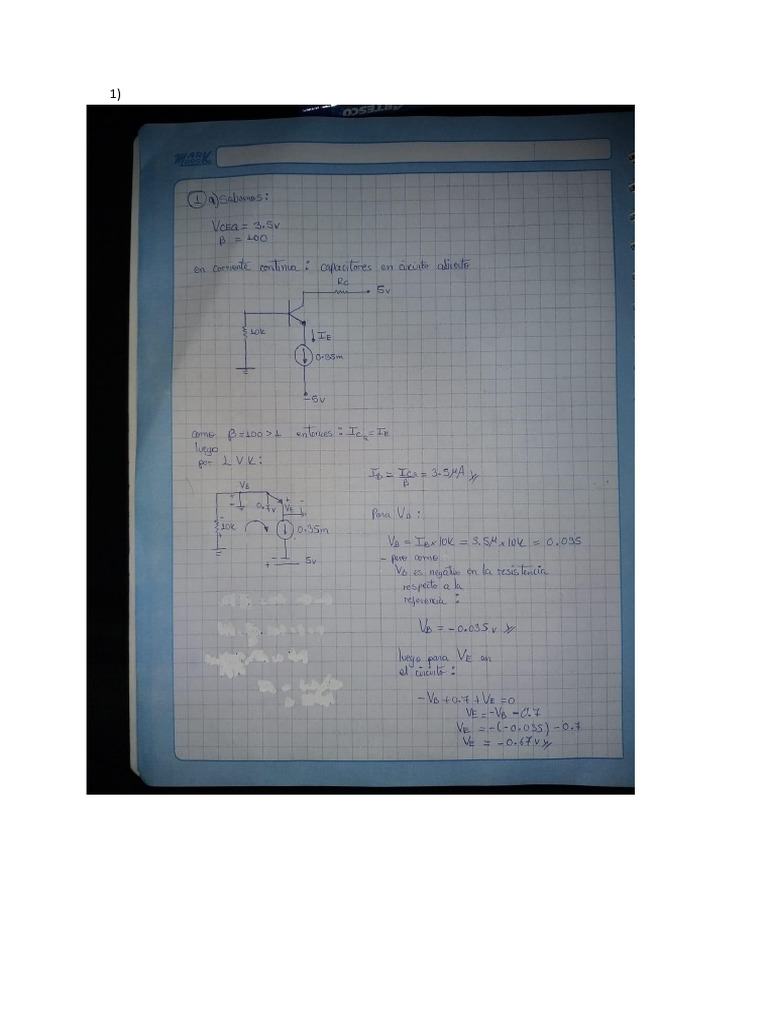 1)
ARTESCO
① a) Sabemos:
VCEQ = 3.5v
β = 100
en corriente continua: capacitores en circuito abierto
Rc
5v
10k
IE
0.35m
-5v
como β=100>1 entonces: ICQ=IE
luego
por LVK:
VB
0.7v
VE
10k
0.35m
5v
IB = ICQ/β = 3.5μA
Para VB:
VB = IB×10K = 3.5μ×10K = 0.035
- pero como
VB es negativo en la resistencia
respecto a la
referencia:
VB = -0.035v
luego para VE en
el circuito:
-VB+0.7+VE=0
VE=-VB-0.7
VE =-(-0.035)-0.7
VE = -0.67v